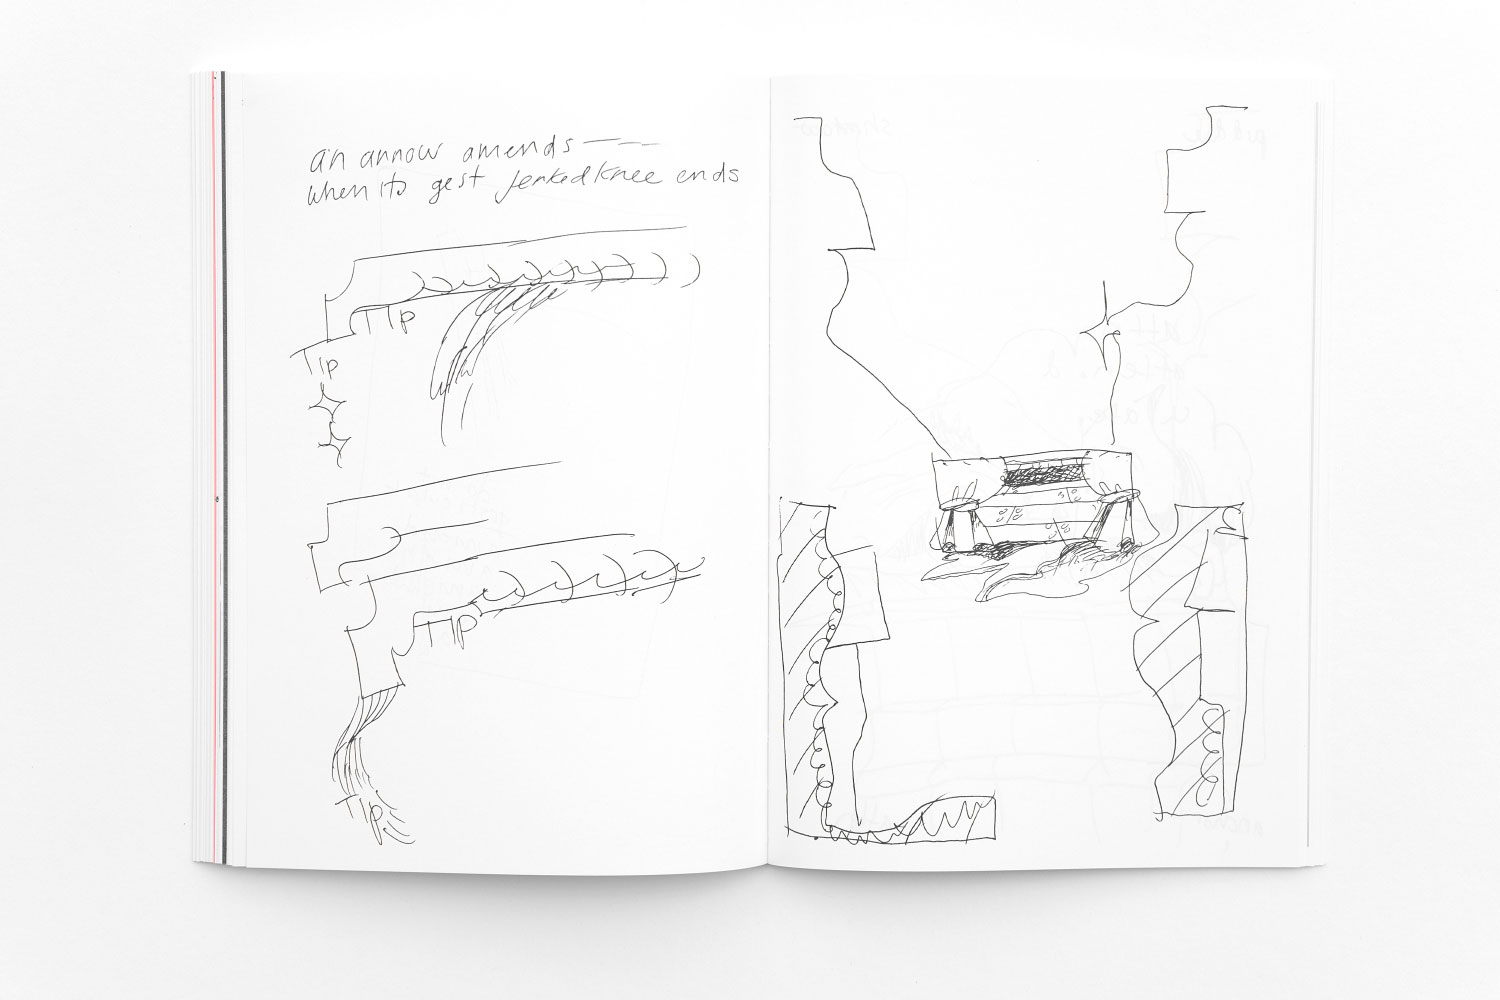 an arrow amends
when its gest jerked knee ends
TIP
TIP
TIP
TIP
shadow